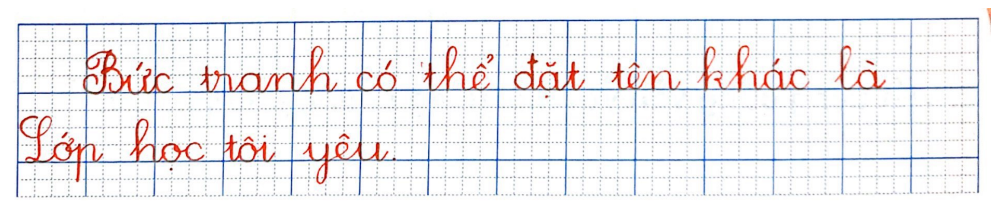 Bức tranh có thể đặt tên khác là
Lớp học tôi yêu.